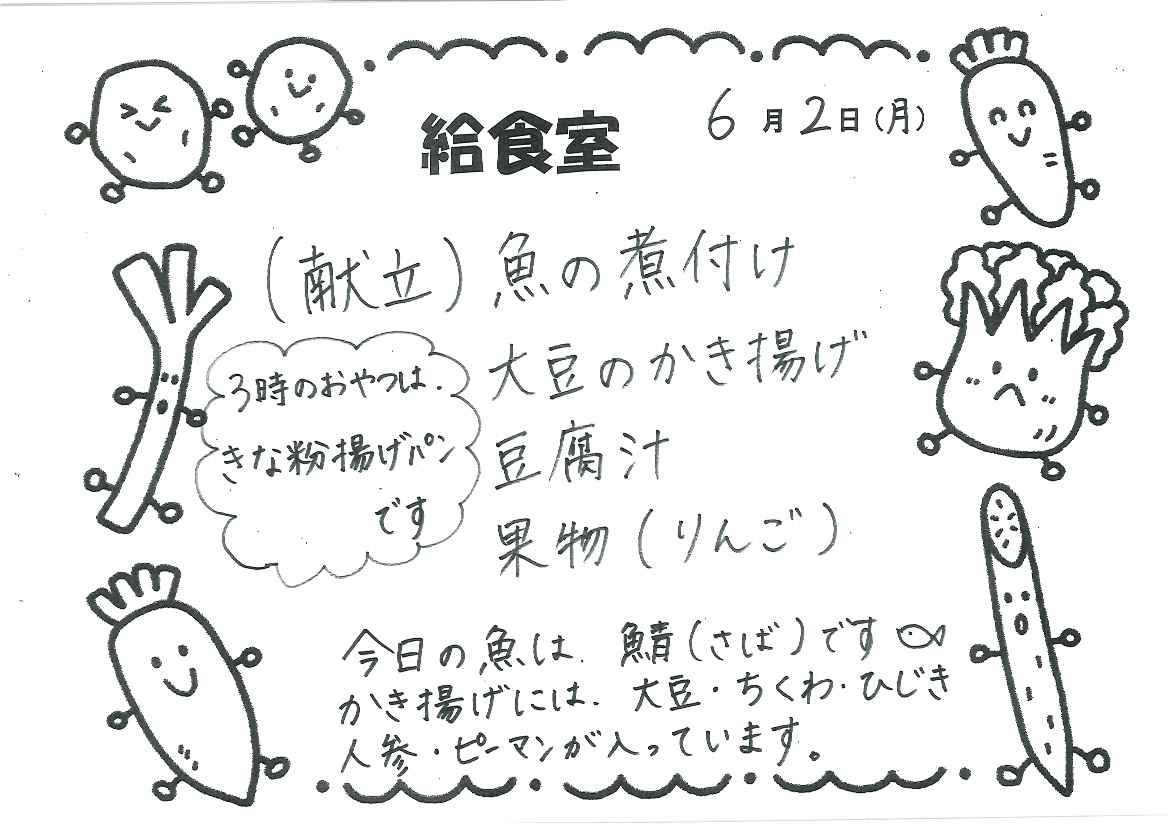 給食室
6月2日(月)
(献立) 魚の煮付け
大豆のかき揚げ
豆腐汁
果物(りんご)
3時のおやつは、
きな粉揚げパン
です
今日の魚は、鯖(さば)です
かき揚げには、大豆・ちくわ・ひじき
人参・ピーマンが入っています。